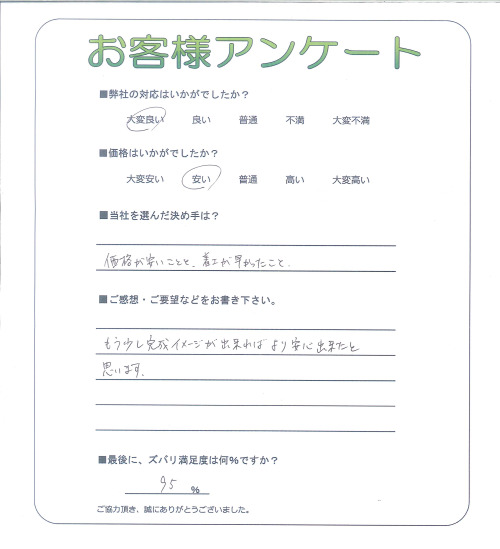 お客様アンケート
■弊社の対応はいかがでしたか？
大変良い 良い 普通 不満 大変不満
■価格はいかがでしたか？
大変安い 安い 普通 高い 大変高い
■当社を選んだ決め手は？
価格が安いことと、着工が早かったこと。
■ご感想・ご要望などをお書き下さい。
もう少し完成イメージが出来ればより安心出来たと
思います。
■最後に、ズバリ満足度は何％ですか？
95 ％
ご協力頂き、誠にありがとうございました。